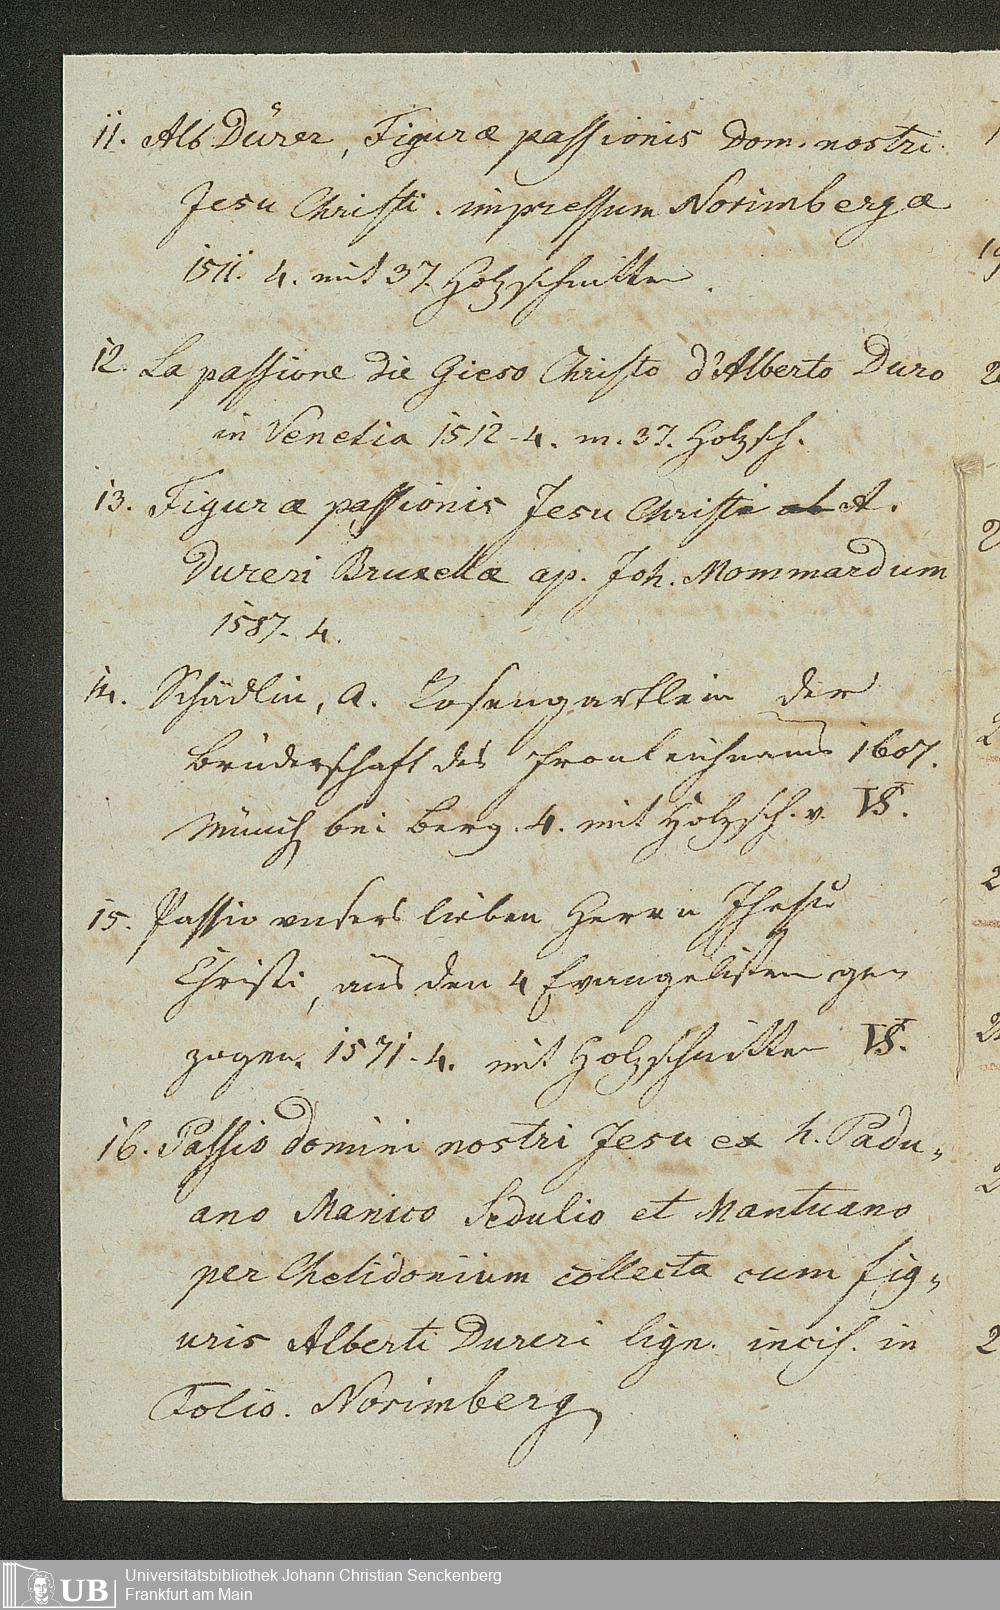 11. Alb Dürer, Figuræ passionis Dom. nostri
Jesu Christi. impressum Norimbergæ
1511. 4. mit 37. Holzschnitten.
12. La passione die Gieso Christo d'Alberto Duro
in Venetia 1512 - 4. m. 37. Holzsch.
13. Figuræ passionis Jesu Christi ab A.
Dureri Bruxellæ ap. Joh. Mommardum
1587. 4.
14. Schädlin, A. Rosengärtlein der
Bruderschaft des Fronleichnams 1607.
Münich bei Berg. 4. mit Holzsch. v. VS.
15. Passio unsers lieben Herrn Jhesu
Christi, aus den 4 Evangelisten ge=
zogen. 1571 - 4. mit Holzschnitten VS.
16. Passio domini nostri Jesu ex h. Padu=
ano Manico Sedulio et Mantuano
per Chelidonium collecta cum fig=
uris Alberti Dureri lign. incis. in
Folio. Norimberg
UB
Universitätsbibliothek Johann Christian Senckenberg
Frankfurt am Main